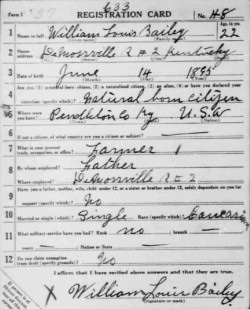 Form 1 633 No. 48
REGISTRATION CARD
1 Name in full William Louis Bailey Age, in yrs. 22
2 Home address DeMossville R # 2 Kentucky
3 Date of birth June 14 1895
4 Are you (1) a natural-born citizen, (2) a naturalized citizen, (3) an alien, (4) or have you declared your intention (specify which)? Natural born citizen
5 Where were you born? Pendleton Co Ky U.S.A
6 If not a citizen, of what country are you a citizen or subject?
7 What is your present trade, occupation, or office? Farmer 1
8 By whom employed? Father
Where employed? DeMossville R # 2
9 Have you a father, mother, wife, child under 12, or a sister or brother under 12, solely dependent on you for support (specify which)? No
10 Married or single (which)? Single Race (specify which)? Caucasian
11 What military service have you had? Rank no ; branch
years ; Nation or State
12 Do you claim exemption from draft (specify grounds)? No
I affirm that I have verified above answers and that they are true.
X William Louis Bailey
(Signature or mark)